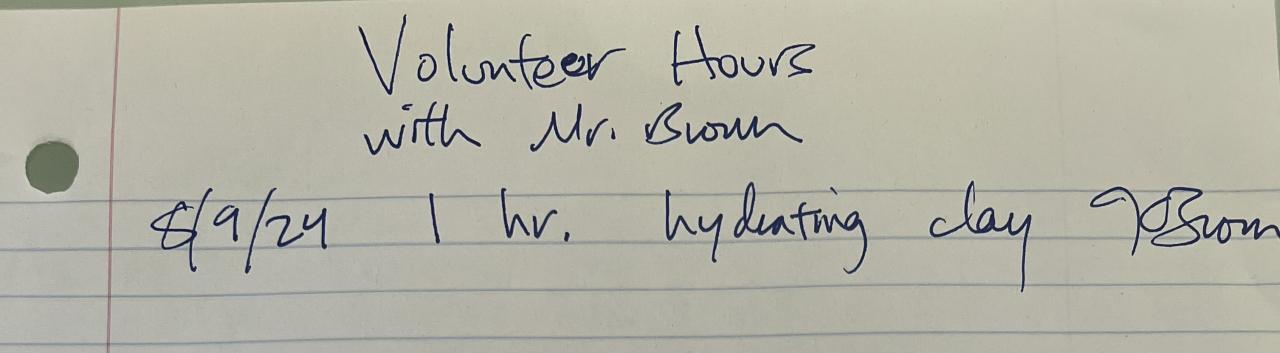 Volunteer Hours
with Mr. Brown
8/9/24 1 hr. hydrating clay JBrown